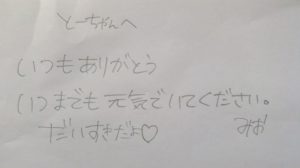 とーちゃんへ
いつもありがとう
いつまでも元気でいてください。
だいすきだよ♡ みお